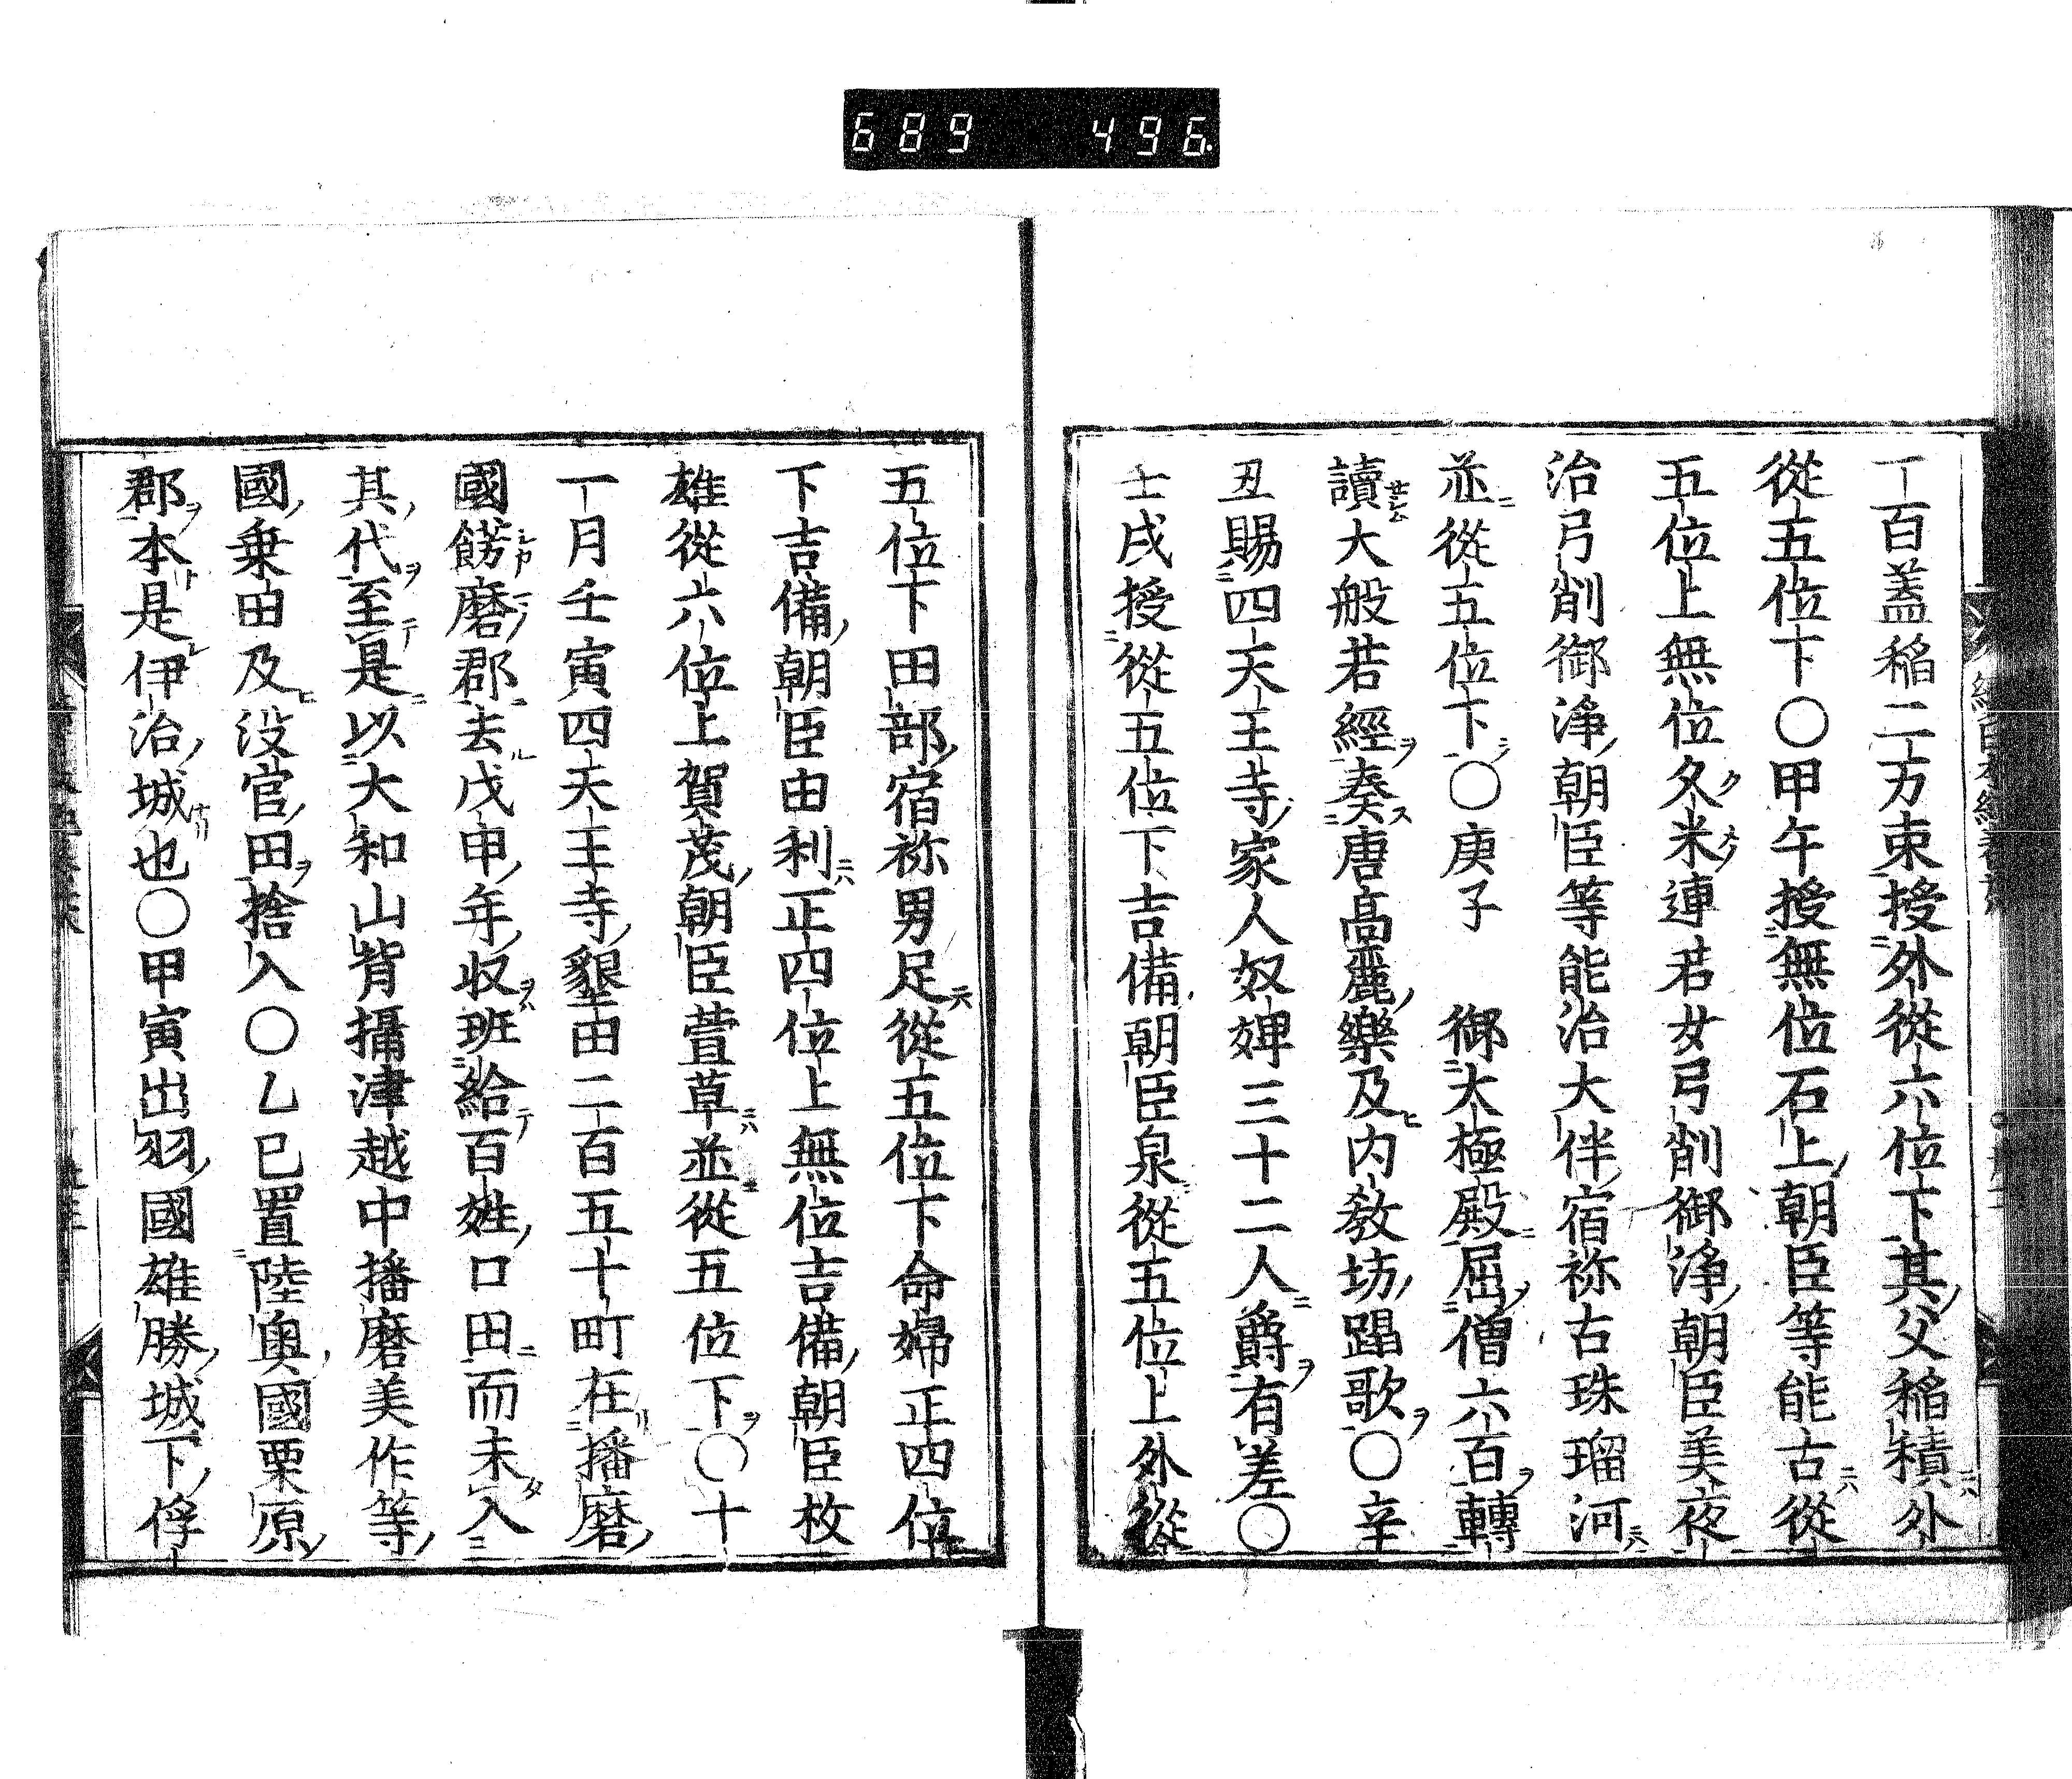 689 496
一百蓋稲二万束授外從六位下其父稲積外
從五位下〇甲午授無位石上朝臣等能古從
五位上無位久米連若女弓削御浄朝臣美夜
治弓削御浄朝臣等能治大伴宿祢古珠瑠河
並從五位下〇庚子　御太極殿屈僧六百轉
讀大般若經奏唐髙麗樂及内教坊蹋歌〇辛
丑賜四天王寺家人奴婢三十二人爵有差〇
壬戌授從五位下吉備朝臣泉從五位上外從
五位下田部宿祢男足從五位下命婦正四位
下吉備朝臣由利正四位上無位吉備朝臣枚
雄從六位上賀茂朝臣萱草並從五位下〇十
一月壬寅四天王寺墾田二百五十町在播磨
國餝磨郡去戊申年収班給百姓口田而未入
其代至是以大和山背攝津越中播磨美作等
國乗田及没官田捨入〇乙巳置陸奥國栗原
郡本是伊治城也〇甲寅出羽國雄勝城下俘